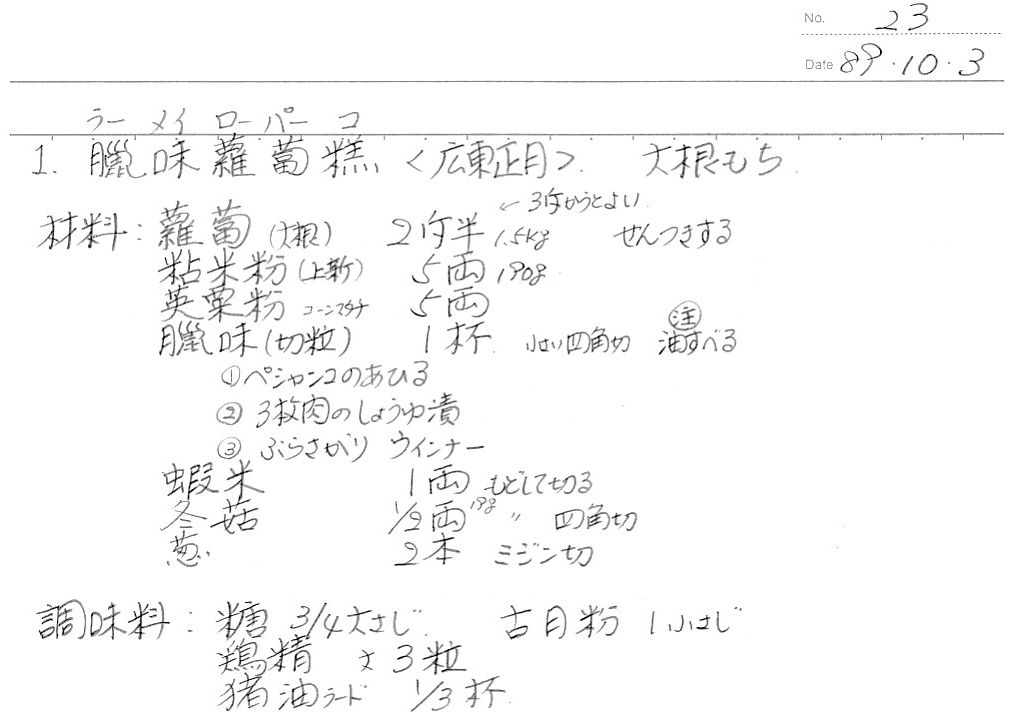 No. 23
Date 89・10・3
ラー メイ ローパー コ
1. 臘味蘿蔔糕 <広東正月>. 大根もち
←3斤かうとよい
材料: 蘿蔔 (大根) 2斤半 1.5kg せんつきする
粘米粉 (上新) 5両 190g
英粟粉 コーンスターチ 5両
臘味 (切粒) 1杯 小さい四角切 注 油すべる
① ペシャンコのあひる
② 3枚肉のしょうゆ漬
③ ぶらさがり ウインナー
蝦米 1両 もどして切る
冬菇 1/2両 19g 〃 四角切
葱 2本 ミジン切
調味料: 糖 3/4大さじ 古月粉 1小さじ
鶏精 大3粒
猪油 ラード 1/3杯